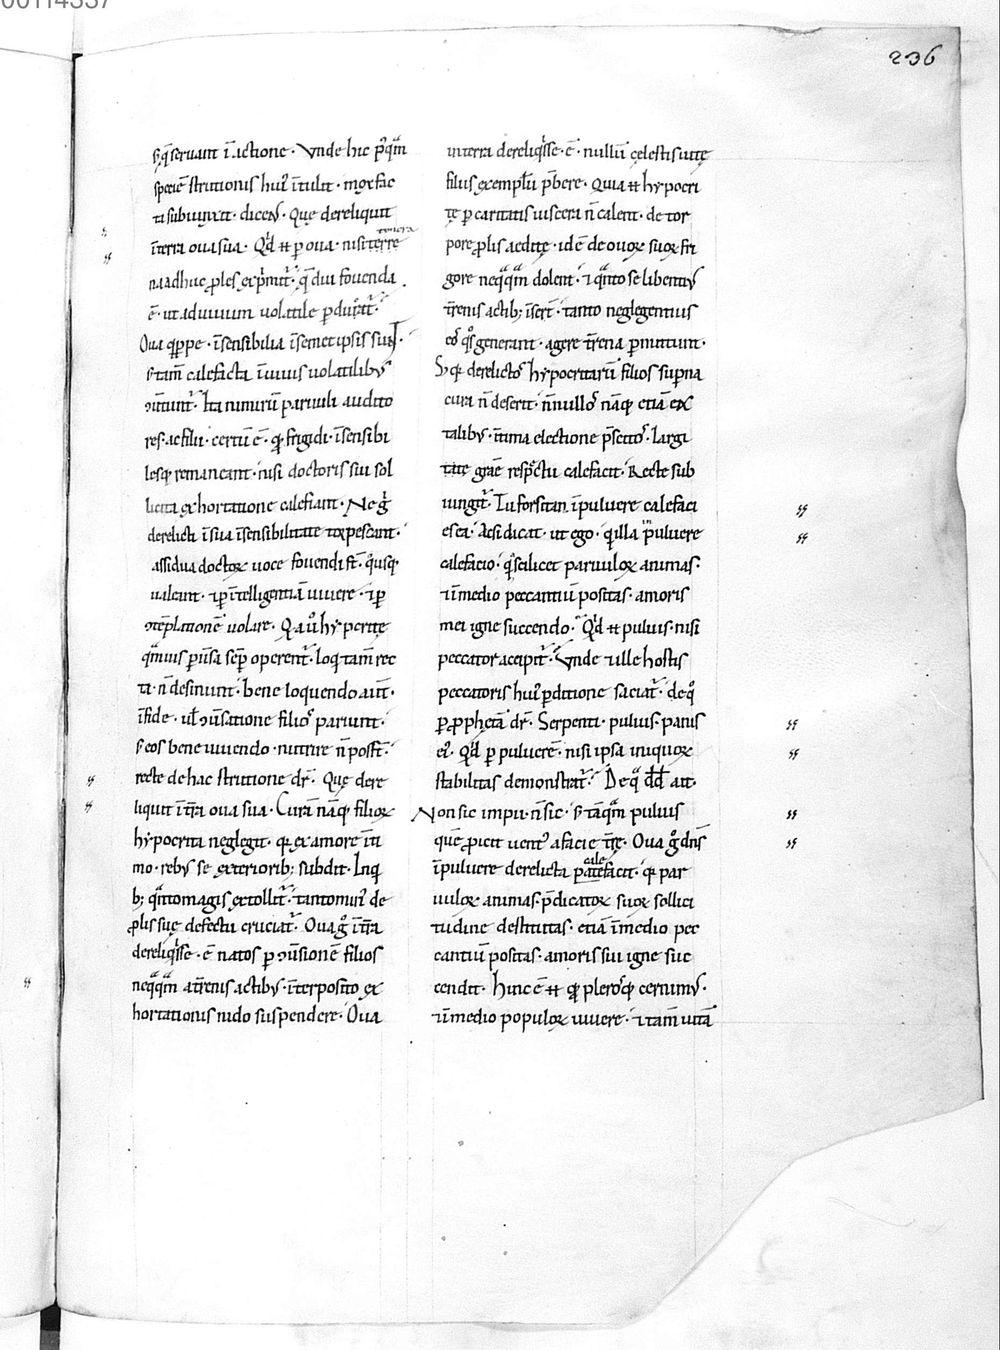 00114337
236
s; q̄ seruant ī actione · Vnde hic p̄q̄m
speciē strutionis hui᷒ ītulit · mox fac
ta subiunxit · dicens · Quę dereliquit
īterra oua sua · Qͥd ҥ ꝑ oua · nisi terre tenera
na adhuc ꝓles exp̄mit᷑ · q̄ diu fouenda
ē · ut ad uiuum uolatile ꝑducat᷑ ·
Oua q̄ppe · īsensibilia īsemet ipsis sunt ·
s; tam̄ calefacta ī uiuis uolatilibus
ↄuertunt᷑ · Ita nimirū paruuli audito
res · ac filii · certū ē · qđ frigidi · īsensibi
lesq; remaneant · nisi doctoris sui sol
licita exhortatione calefiant · Ne g̊
derelicti ī sua īsensibilitate torpescant ·
assidua doctoꝝ uoce fouendi st̄ · q̊usq;
ualeant · ⁊ ꝑ ītelligentiā uiuere · ⁊ ꝑ
ↄtēplationē uolare · Q a ů hypocritę
q̄muis ꝑuersa sēp̄ operent᷑ · loqui tam̄ rec
ta · n̄ desinunt · bene loquendo aut̄ ·
ī fide · ul̄ ↄuersatione filios pariunt ·
s; eos bene uiuendo · nutrire n̄ poss̄t ·
recte de hac strutione dr̄ · Quę dere
liquit ī tr̄ra oua sua · Curā nāq; filioꝝ
hypocrita neglegit · q; ex amore īti
mo · rebus se exterioribꝫ subdit · In q̇
bꝫ q̄nto magis extollit᷑ · tanto min᷒ de
ꝓlis suę defectu cruciat᷑ · Oua g̊ ī tr̄ra
dereliq̇sse · ē natos ꝑ ↄuersionē filios
neq̄q̄m a tr̄renis actibus · īterposito ex
hortationis nido suspendere · Oua
in terra dereliq̇sse · ē · nullū cęlestis uitę
filiis exemplū p̄bere · Quia ҥ hypocri
tę ꝑ caritatis uiscera n̄ calent · de tor
pore ꝓlis aeditę · id ē de ouoꝝ suoꝝ fri
gore neq̄q̄m dolent · ⁊ q̄nto se libentius
tr̄renis actibꝫ īsert᷑ · tanto neglegentius
eos q̊s generant · agere tr̄rena ꝑmittunt ·
S; q; derelictos hypocritarū filios sup̄na
cura n̄ deserit · n̄nullos nāq; etiā ex
talibus · ītima electione p̄scitos · largi
tate gr̄ae respectu calefacit · Recte sub
iungit᷑ · Tu forsitan ī puluere calefaci
es ea · Ac si dicat · ut ego · q̇ illa ī puluere
calefacio · q̇a scilicet paruuloꝝ animas ·
⁊ in medio peccantiū positas · amoris
mei igne succendo · Qͥd ҥ puluis · nisi
peccator accipit᷑ · Vnde ⁊ ille hostis
peccatoris hui᷒ ꝑditione saciat᷑ · de q̊
ꝑ ꝓphetā dr̄ · Serpenti · puluis · panis
ei᷒ · Qͥd ꝑ puluerē · nisi ipsa iniquoꝝ
stabilitas demonstrat᷑ · De q̄ dd̄ ait ·
Non sic impii · n̄ sic · s; tāq̄m puluis
quē ꝓicit uentus a facie tr̄ę · Oua g̊ dn̄s
ī puluere derelicta patefacit cale · q; par
uuloꝝ animas · p̄dicatoꝝ suoꝝ sollici
tudine destitutas · etiā ī medio pec
cantiū positas · amoris sui igne suc
cendit · Hinc ē ҥ qđ plerosq; cernimus ·
⁊ in medio populoꝝ uiuere · ⁊ tam̄ uitā